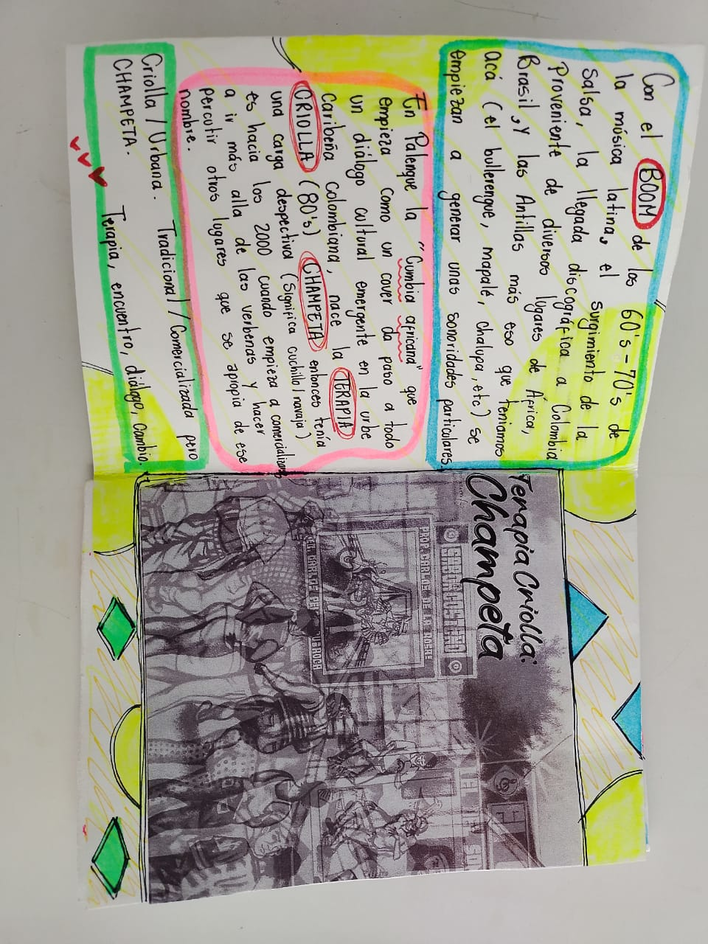 Con el BOOM de los 60's-70's de
la música latina, el surgimiento de la
Salsa, la llegada discográfica a Colombia
Proveniente de diversos lugares de África,
Brasil, Y las Antillas más eso que teníamos
acá (el bullerengue, mapalé, chalupa, etc) se
empiezan a generar unas sonoridades particulares.
En Palenque la "Cumbia africana" que
empieza como un cover da paso a todo
un diálogo cultural emergente en la urbe
Caribeña Colombiana, nace la TERAPIA
CRIOLLA (80's) CHAMPETA entonces tenía
una carga despectiva (significa cuchillo/navaja)
es hacia los 2000 cuando empieza a comercializarse
a ir más alla de las verbenas y hacer
percutir otros lugares que se apropia de ese
nombre.
Criolla/Urbana. Tradicional/Comercializada pero
CHAMPETA. Terapia, encuentro, diálogo, Cambio.
Terapia Criolla:
Champeta
SABOR COSTEÑO
PROP. CARLOS DE LA